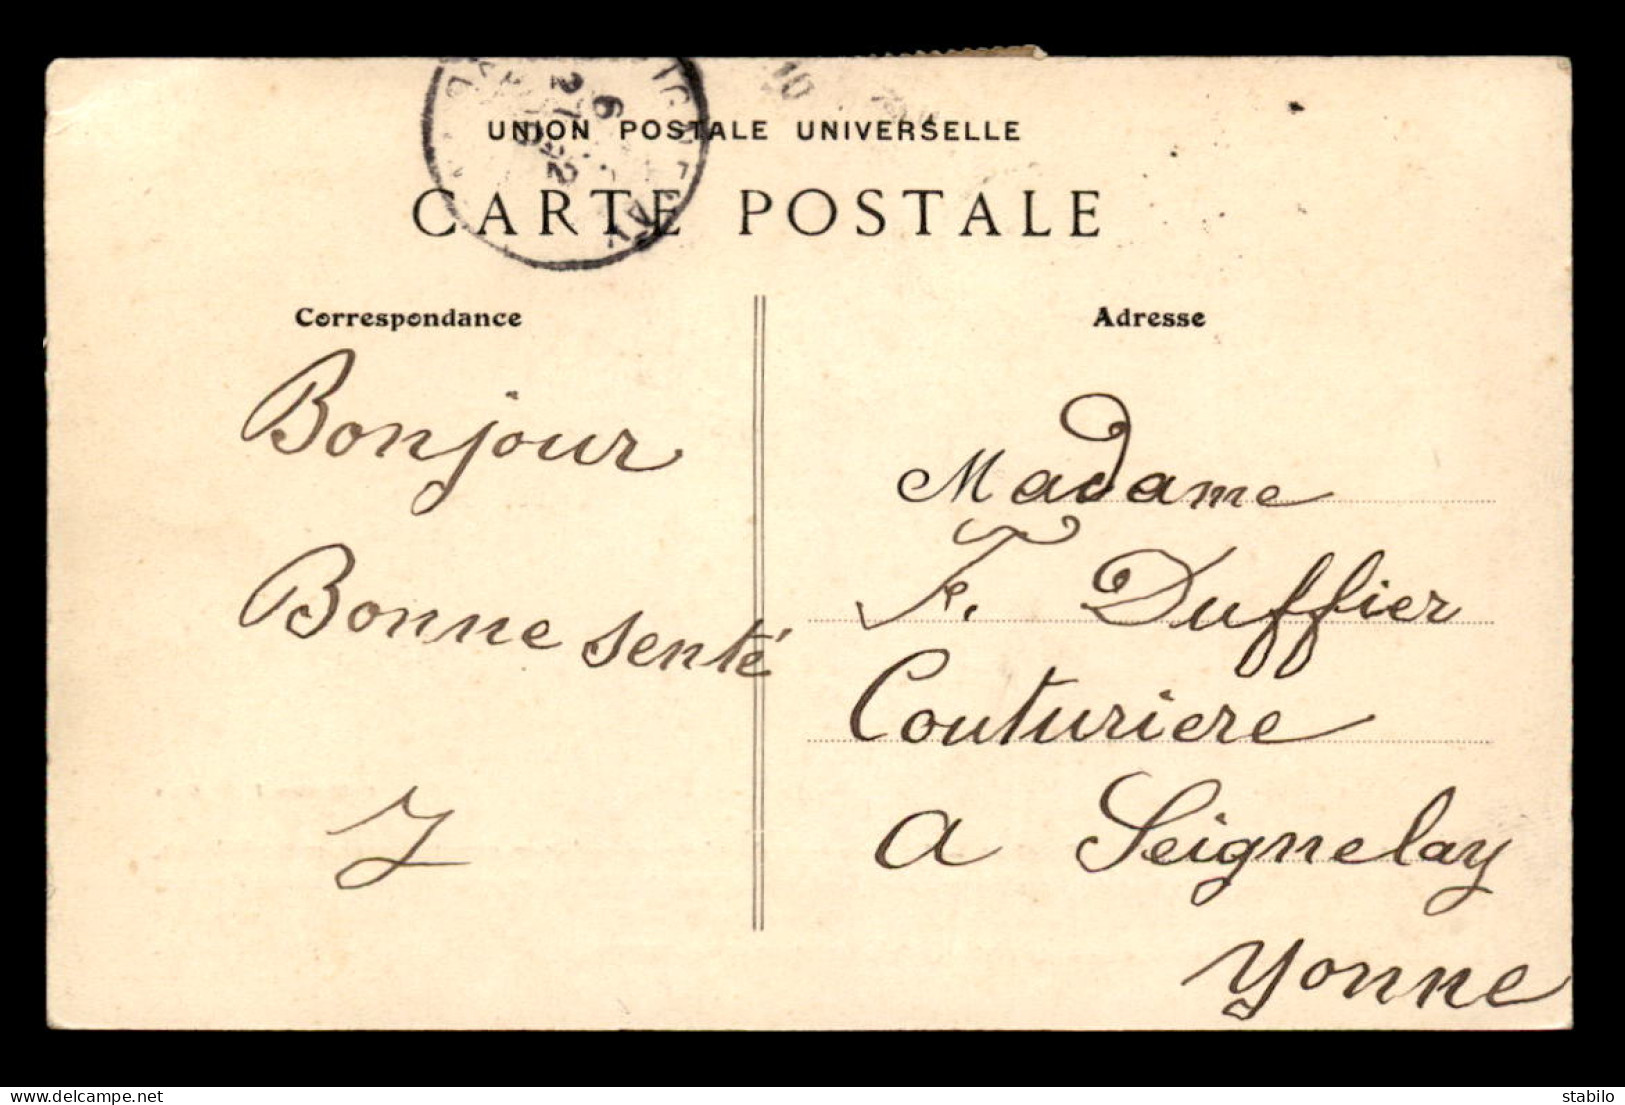 UNION POSTALE UNIVERSELLE
CARTE POSTALE
Correspondance
Bonjour
Bonne senté
Adresse
Madame
F. Duffier
Couturiere
a Seignelay
Yonne
delcampe.net
stabilo